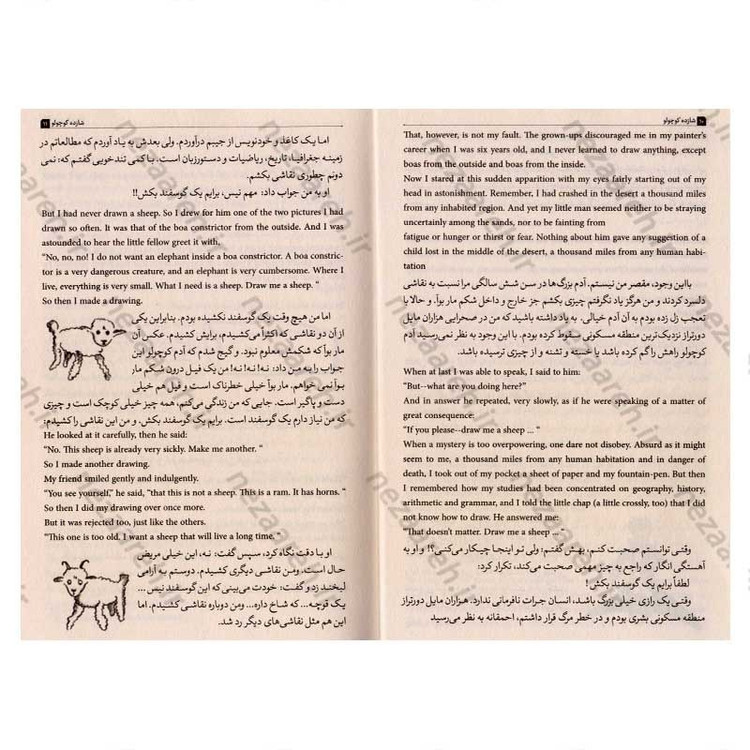 ۱۰ شازده کوچولو
That, however, is not my fault. The grown-ups discouraged me in my painter's
career when I was six years old, and I never learned to draw anything, except
boas from the outside and boas from the inside.
Now I stared at this sudden apparition with my eyes fairly starting out of my
head in astonishment. Remember, I had crashed in the desert a thousand miles
from any inhabited region. And yet my little man seemed neither to be straying
uncertainly among the sands, nor to be fainting from
fatigue or hunger or thirst or fear. Nothing about him gave any suggestion of a
child lost in the middle of the desert, a thousand miles from any human habi-
tation
بااین وجود، مقصر من نیستم. آدم بزرگ‌ها در سن شش سالگی مرا نسبت به نقاشی
دلسرد کردند و من هرگز یاد نگرفتم چیزی بکشم جز خارج و داخل شکم مار بوآ. و حالا با
تعجب زل زده بودم به آن آدم خیالی. به یاد داشته باشید که من در صحرایی هزاران مایل
دورتر از نزدیک‌ترین منطقه مسکونی سقوط کرده بودم. با این وجود به نظر نمی‌رسید آدم
کوچولو راهش را گم کرده باشد یا خسته و تشنه و از چیزی ترسیده باشد.
When at last I was able to speak, I said to him:
"But--what are you doing here?"
And in answer he repeated, very slowly, as if he were speaking of a matter of
great consequence:
"If you please--draw me a sheep ... "
When a mystery is too overpowering, one dare not disobey. Absurd as it might
seem to me, a thousand miles from any human habitation and in danger of
death, I took out of my pocket a sheet of paper and my fountain-pen. But then
I remembered how my studies had been concentrated on geography, history,
arithmetic, and grammar, and I told the little chap (a little crossly, too) that I did
not know how to draw. He answered me:
"That doesn't matter. Draw me a sheep ... "
وقتی توانستم صحبت کنم، بهش گفتم: ولی تو اینجا چیکار می‌کنی؟! و او به
آهستگی انگار که راجع به چیز مهمی صحبت می‌کند، تکرار کرد:
لطفاً برایم یک گوسفند بکش!
وقتی یک رازی خیلی بزرگ باشد، انسان جرات نافرمانی ندارد. هزاران مایل دورتر از
منطقه مسکونی بشری بودم و در خطر مرگ قرار داشتم، احمقانه به نظر می‌رسید
شازده کوچولو ۱۱
اما یک کاغذ و خودنویس از جیبم درآوردم. ولی بعدش به یاد آوردم که مطالعاتم در
زمینه جغرافیا، تاریخ، ریاضیات و دستورزبان است. با کمی تندخویی گفتم که: نمی
دونم چطوری نقاشی بکشم.
او به من جواب داد: مهم نیس، برایم یک گوسفند بکش!!
But I had never drawn a sheep. So I drew for him one of the two pictures I had
drawn so often. It was that of the boa constrictor from the outside. And I was
astounded to hear the little fellow greet it with,
"No, no, no! I do not want an elephant inside a boa constrictor. A boa constric-
tor is a very dangerous creature, and an elephant is very cumbersome. Where I
live, everything is very small. What I need is a sheep. Draw me a sheep. "
So then I made a drawing.
اما من هیچ وقت یک گوسفند نکشیده بودم. بنابراین یکی
از آن دو نقاشی که اکثراً می‌کشیدم، برایش کشیدم. عکس آن
مار بوآ که شکمش معلوم نبود. و گیج شدم که آدم کوچولو این
جواب را به من داد: نه! نه! نه! من یک فیل درون شکم مار
بوآ نمی خواهم. مار بوآ خیلی خطرناک است و فیل هم خیلی
دست و پاگیر است. جایی که من زندگی می‌کنم، همه چیز خیلی کوچک است و چیزی
که من نیاز دارم یک گوسفند است. برایم یک گوسفند بکش. و من این نقاشی را کشیدم:
He looked at it carefully, then he said:
"No. This sheep is already very sickly. Make me another. "
So I made another drawing.
My friend smiled gently and indulgently.
"You see yourself," he said, "that this is not a sheep. This is a ram. It has horns. "
So then I did my drawing over once more.
But it was rejected too, just like the others.
"This one is too old. I want a sheep that will live a long time. "
او با دقت نگاه کرد، سپس گفت: نه، این خیلی مریض
حال است. ومن نقاشی دیگری کشیدم. دوستم به آرامی
لبخند زد و گفت: خودت می‌بینی که این گوسفند نیس ...
یک قوچه... که شاخ داره... ومن دوباره نقاشی کشیدم. اما
این هم مثل نقاشی‌های دیگر رد شد.
nezaareh.ir